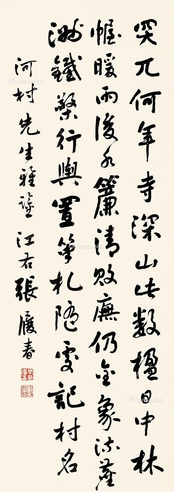 突兀何年寺深山此數楹日中林
幄暖雨後水簾清敗廡仍金象流塵
鐵檠行輿置筆札隨處記村名
河村先生雅鑒 江右張履春